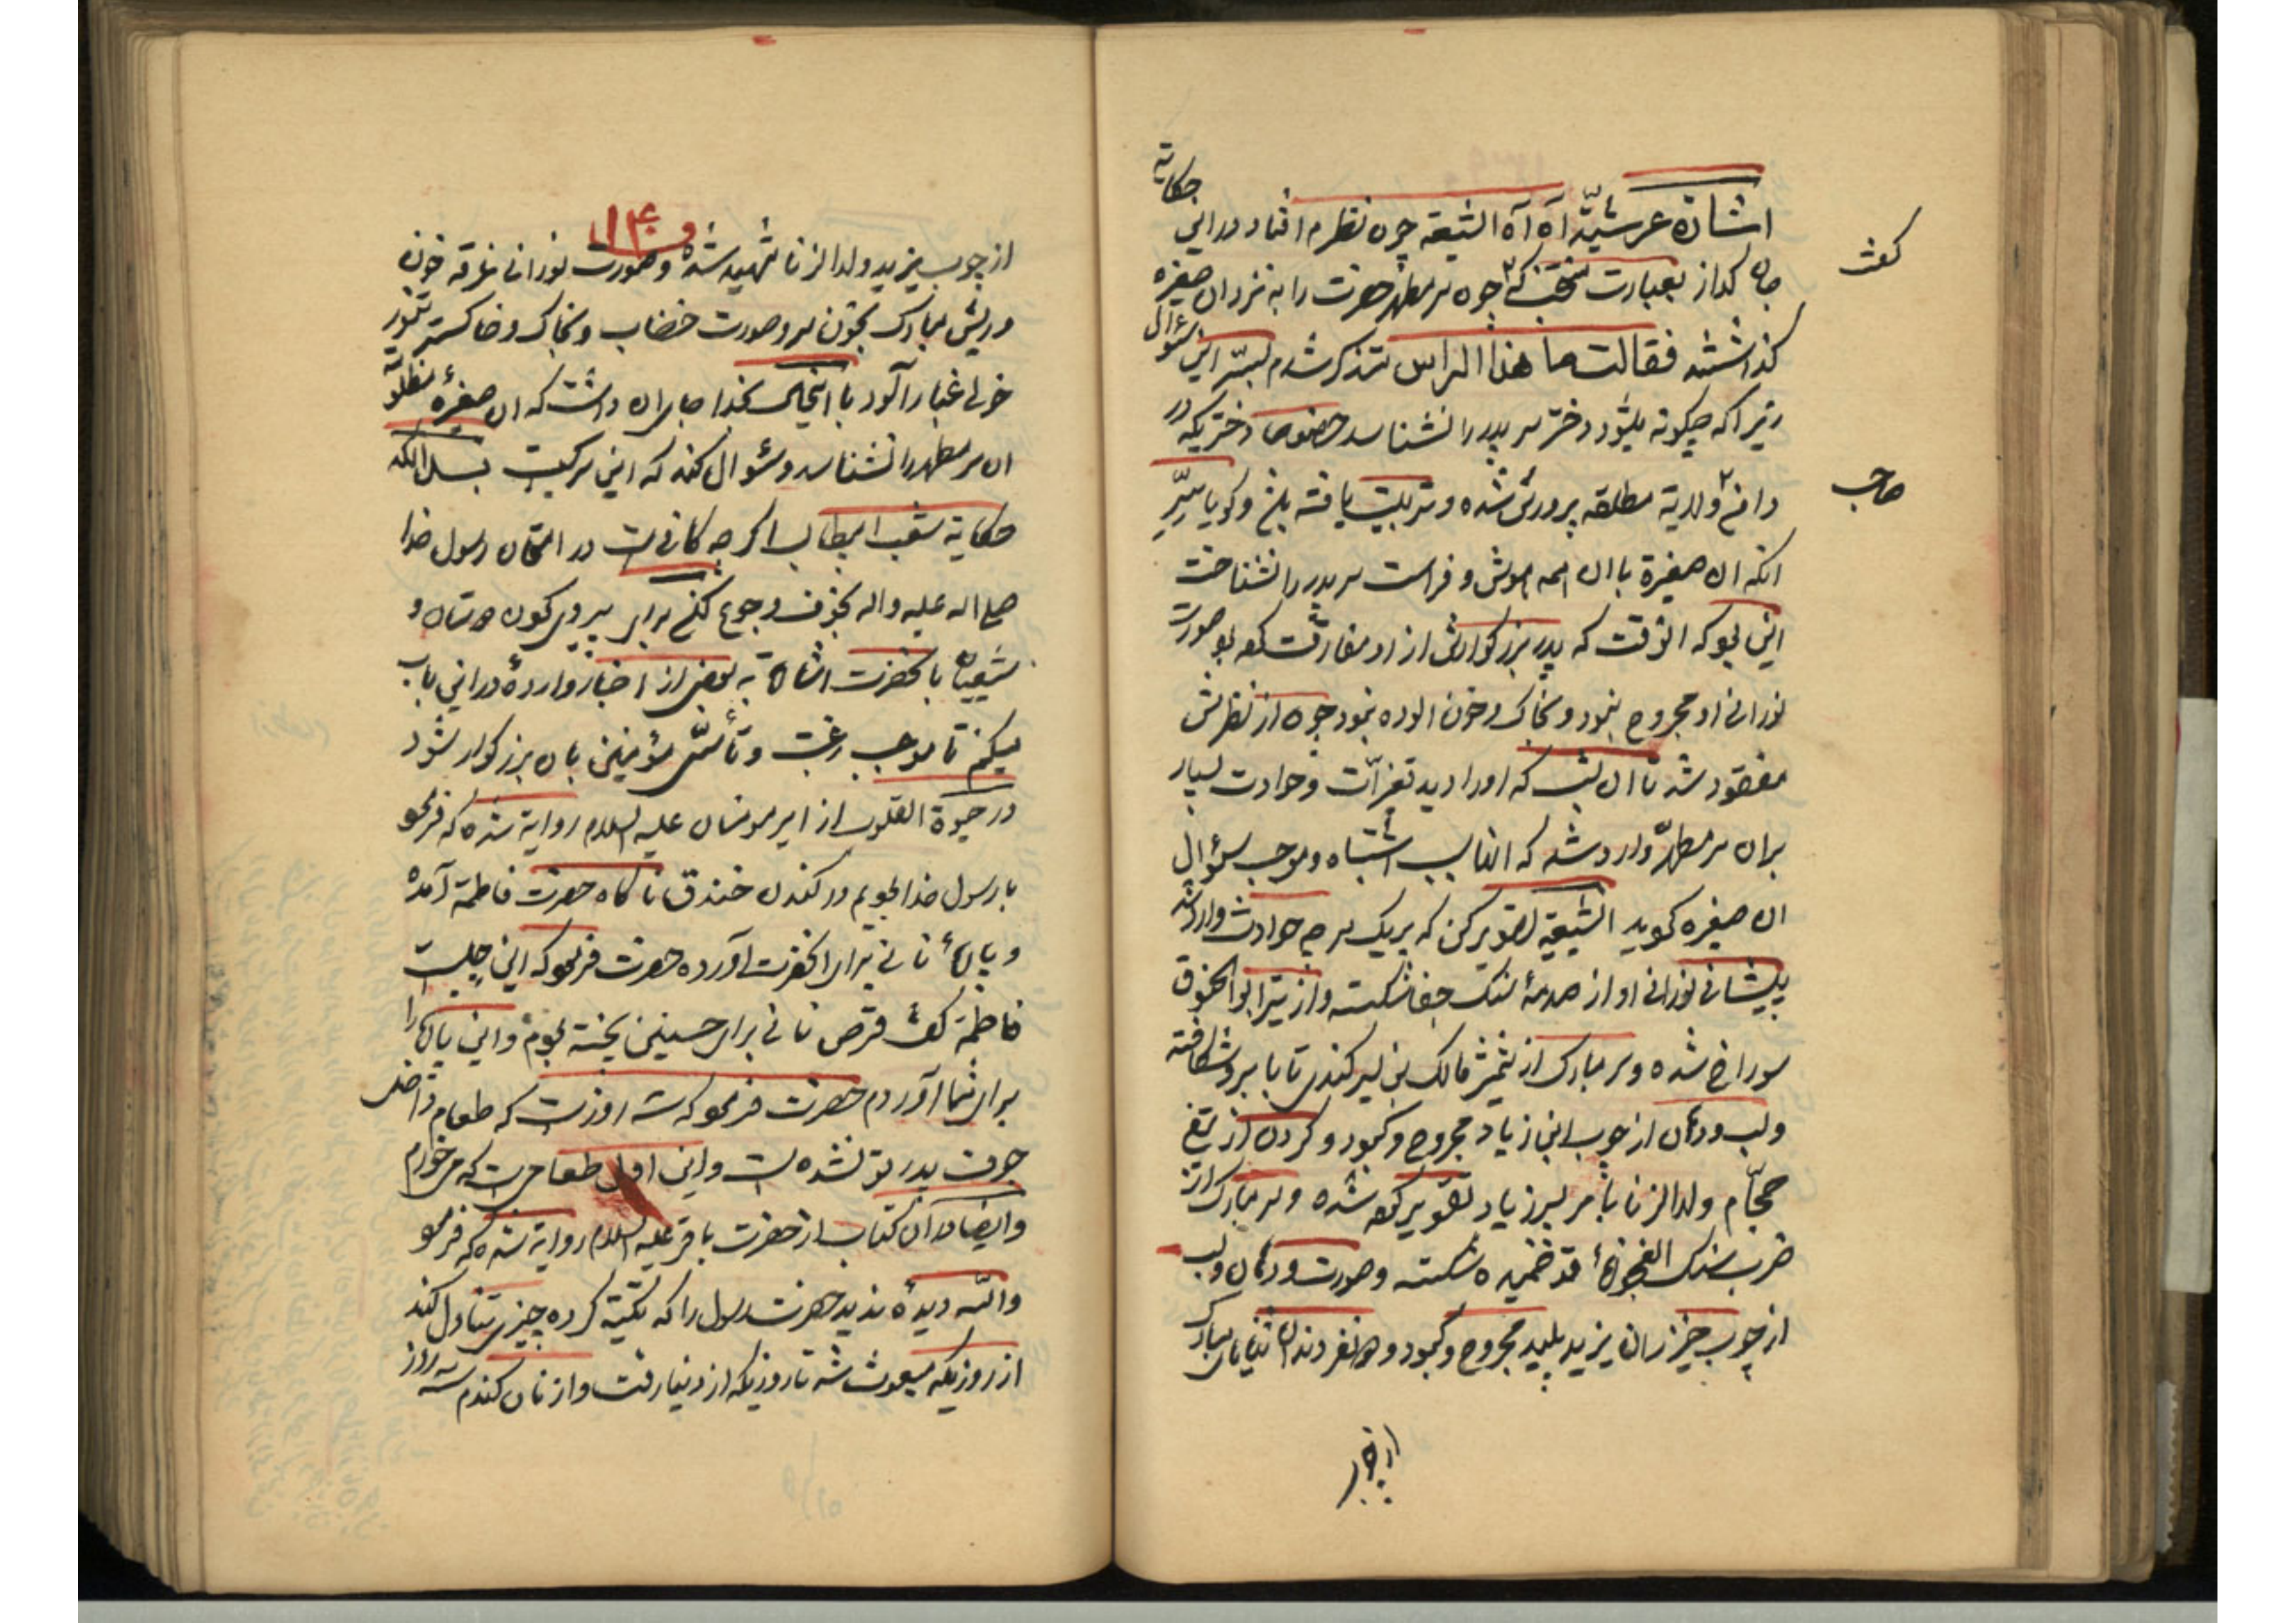 اشارة عرشیّة آه آه الشیعة چون نظرم افتاد در این حکایة
جان کداز بعبارت منتخب که چون سر مطهّر حضرت را به نزد ان صغیره
کفت
کذاشتند فقالت ما هذا الراس متذکر شدم بسرّ این سؤال
زیرا که چکونه میشود دختر سر پدر را نشناسد خصوصا دختریکه در
دامن ولایة مطلقه پرورش شده و تربیت یافته بلغ و کویا سرّ
صاحب
انکه ان صغیرة با ان همه هوش و فراست سر پدر را نشناخت
این بود که انوقت که پدر بزرکوارش از او مفارقت کرد بود صورت
نورانی او مجروح نبود و بخاک و خون الوده نبود چون از نظرش
مفقود شد تا ان شب که اورا دید تغیرّات و حوادث بسیار
بران سر مطهّر وارد شد که انها سبب اشتباه و موجب سؤال
ان صغیره کردید الشیعة تصویر کن که بر یک سر چه حوادث وارد شد
پیشانی نورانی او از صدمهٔ سنک جفا شکسته و از تیر ابوالحنوق
سوراخ شده و سر مبارک از شمشیر مالک بن یسر کندی تا بابرو شکافته
و لب و دندان از چوب ابن زیاد مجروح و کبود و کردن از تیغ
حجّام ولدالزنا بامر پسر زیاد تقویر کرده شده و سر مبارک از
ضرب سنک العجوزهٔ قد خمیده شکسته و صورت و دندان و لب
از چوب خیزران یزید پلید مجروح و کبود و دندان ثنایای مبارک
از چوب
۱۴۰
از چوب یزید ولدالزنا شهید شده و صورت نورانی غرقه خون
و ریش مبارک بخون سر و صورت خضاب و بخاک و خاکستر تنور
خولی غبار آلود با اینحال بخدا جا بران داشت که ان صغیرهٔ مظلومه
ان سر مطهر را نشناسد و سؤال کند که این سر کیست بسل انکه
حکایة شعب ابیطالب اکر چه کافیست در امتحان رسول خدا
صلی اله علیه و اله بخوف و جوع لکن برای پیروی کردن دوستان و
شیعیان بانحضرت اشارة به بعضی از اخبار واردهٔ در این باب
میکنم تا موجب رغبت و تأسّی مؤمنین بان بزرکوار شود
در حیوة القلوب از امیر مومنان علیه السلام روایة شده که فرمود
با رسول خدا بودیم در کندن خندق ناکاه حضرت فاطمة آمد
و پارهٔ نانی برای انحضرت آورده حضرت فرمود که این چیست
فاطمة کفت قرص نانی برای حسنین پخته بودم و این پاره را
برای شما آوردم حضرت فرمود که سه روزست که طعام داخل
جوف پدر تو نشده است و این اول طعامیست که میخورم
و ایضا در ان کتاب از حضرت باقر علیه السلام روایة شده که فرمود
والله دیدهٔ ندید حضرت رسول را که تکیّة کرده چیزی تناول کند
از روزیکه مبعوث شد تا روزیکه از دنیا رفت و از نان کندم سه روز